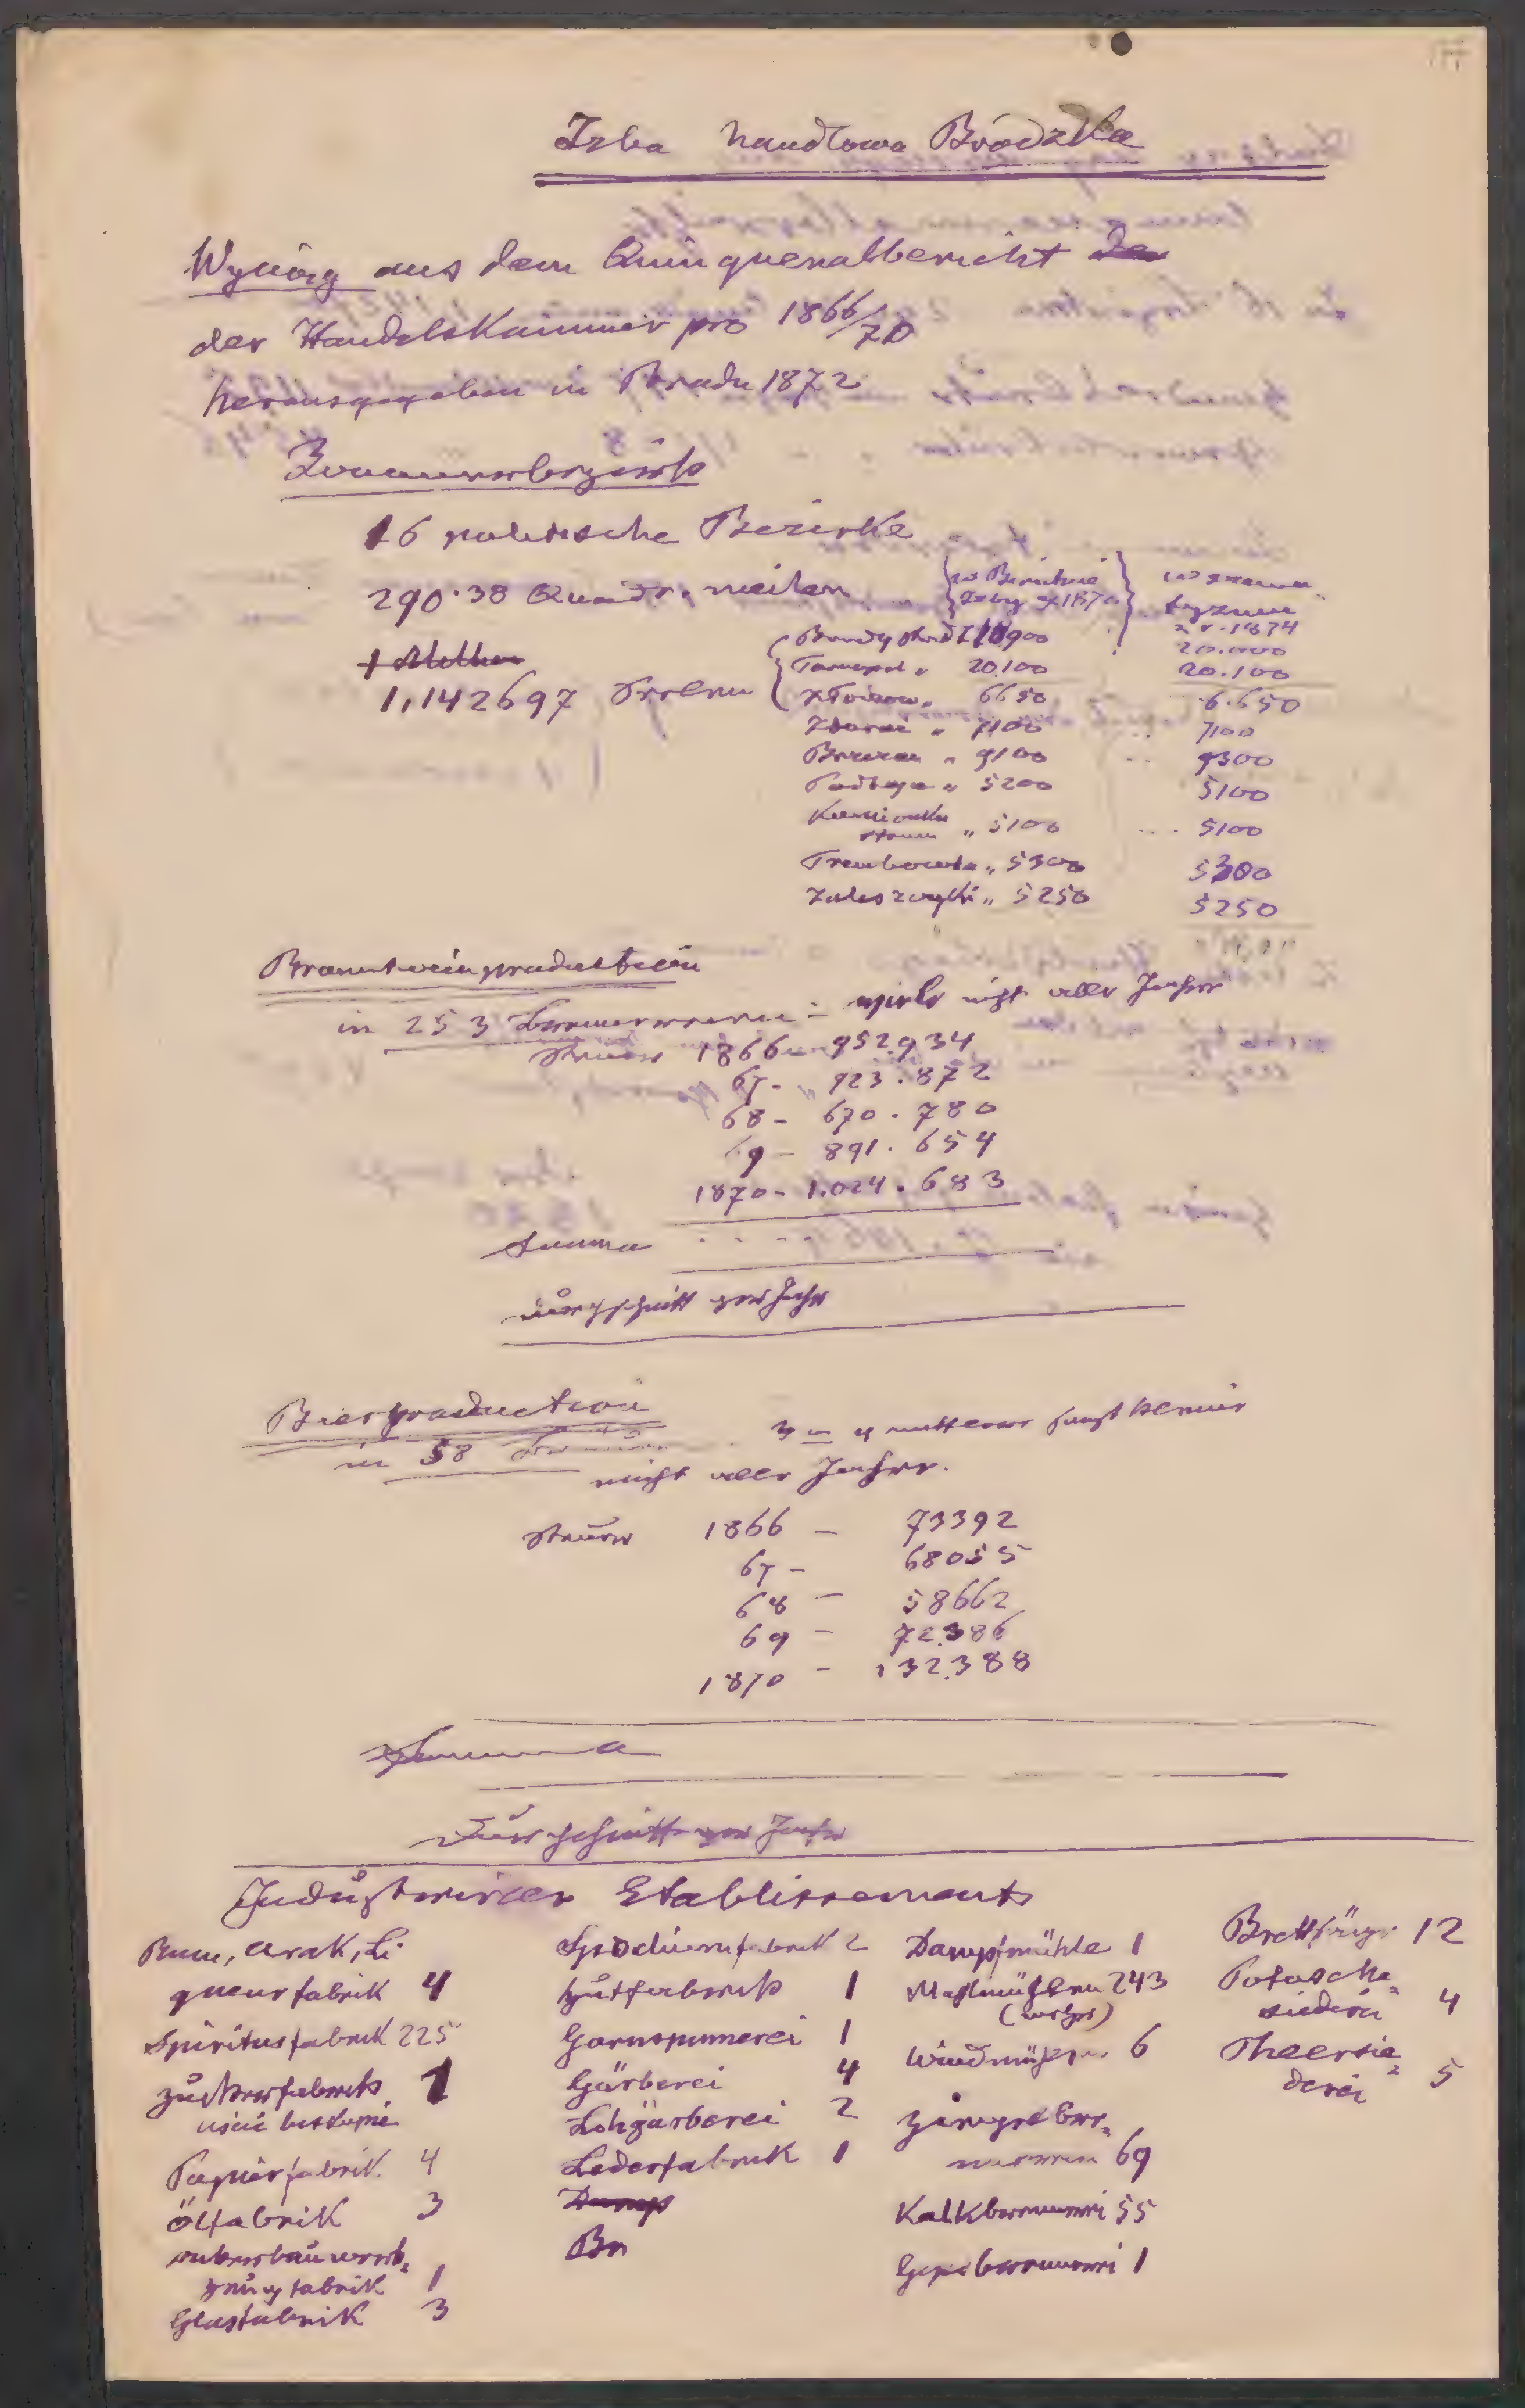 Izba handlowa Brodzka
Wyciąg aus dem Quinquenalbericht der
der Handelskammer pro 1866/70
herausgegeben in Brody 1872
16 politische Bezirke
290.38 Quadr. meilen
w szema-
tyzmie
z r. 1874
Brody 20.000
Tarnopol „ 20.100 20.100
Złoczow „ 6650 6.650
Zbaraż „ 7100 7100
Brzeżan „ 9100 9300
Podhajce „ 5200 5100
Kamionka
strum „ 5100 5100
Trembowla „ 5300 5300
Zaleszczyki „ 5250 5250
1,142697 Seelen
Branntweinproduction
in 253 Brennereien - nicht aller Jahre
Steuer 1866 952.934
67 - 923.872
68 - 670.780
69 - 891.654
1870 - 1.024.683
Summa
Durchschnitt per Jahr
Bierproduction
in 58
nicht aller Jahre.
Steuer 1866 - 73392
67 - 68055
68 - 58662
69 - 72.386
1870 - 132.388
Summa
Durchschnitt per Jahr
Industrieller Etablissements
Rum, Arak, Li
queurfabrik 4
Spiritusfabrik 225
Zuckerfabrik 1
uście biskupie
Papierfabrik 4
Ölfabrik 3
Ackerbauwerk-
zeugfabrik 1
Glasfabrik 3
Spodiumfabrik 2
Hutfabrik 1
Garnspinnerei 1
Gärberei 4
Lohgärberei 2
Lederfabrik 1
Damp
Br
Dampfmühle 1
Mahlmühlen 243
Windmühlen 6
Ziegelbren-
nereien 69
Kalkbrennerei 55
Gipsbrennerei 1
Brettsäge 12
Potasche-
siederei 4
Theersie-
derei 5